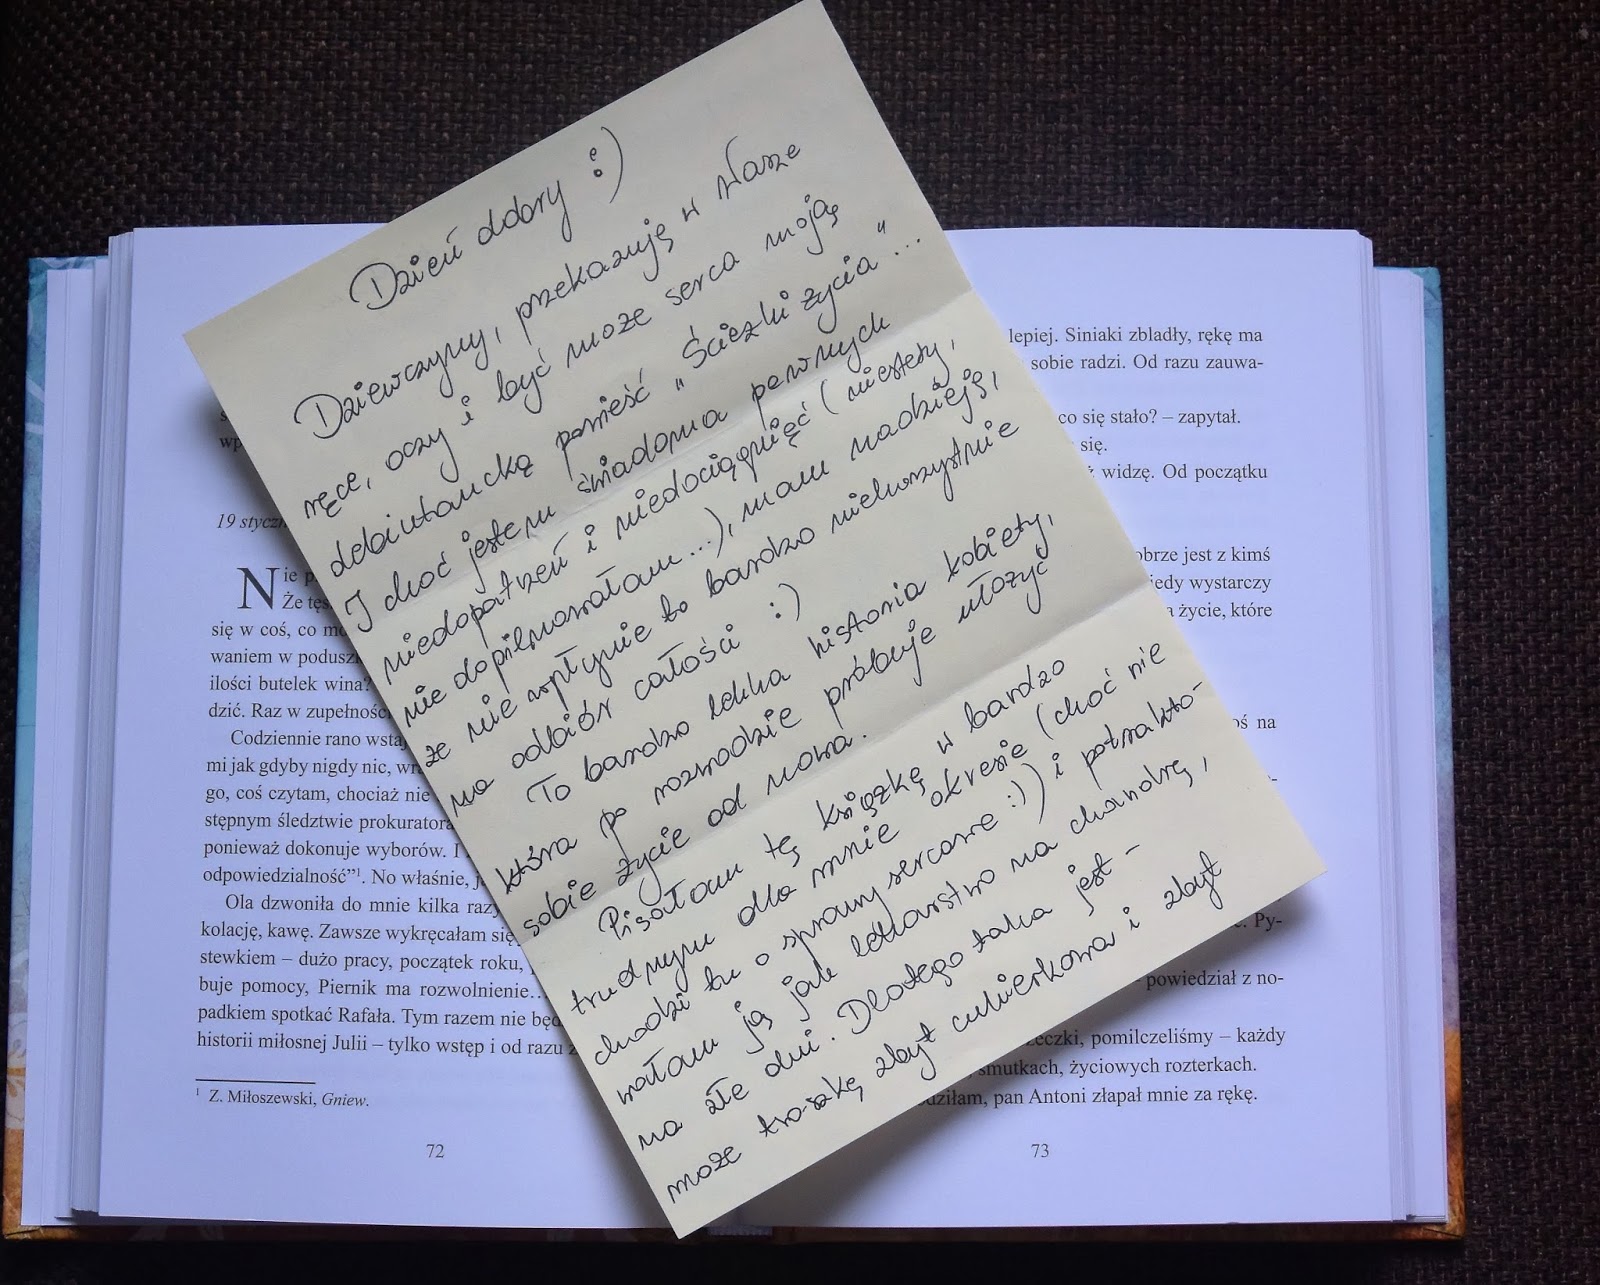 Dzień dobry :)
Dziewczyny, przekazuję w Wasze
ręce, oczy i być może serca moją
debiutancką powieść „Ścieżki życia"...
I choć jestem świadoma pewnych
niedopatrzeń i niedociągnięć (niestety,
nie dopilnowałam...), mam nadzieję,
że nie wpłynie to bardzo niekorzystnie
na odbiór całości :)
To bardzo lekka historia kobiety,
która po rozwodzie próbuje ułożyć
sobie życie od nowa.
Pisałam tę książkę w bardzo
trudnym dla mnie okresie (choć nie
chodzi tu o sprawy sercowe :)) i potrakto-
wałam ją jak lekarstwo na chandrę,
na złe dni. Dlatego taka jest -
może troszkę zbyt cukierkowa i zbyt
19 stycz
Nie p
Że tęs
się w coś, co mo
waniem w podusz
ilości butelek wina?
dzić. Raz w zupełnośc
Codziennie rano wsta
mi jak gdyby nigdy nic, wr
go, coś czytam, chociaż nie
stępnym śledztwie prokuratora
ponieważ dokonuje wyborów. I
odpowiedzialność”¹. No właśnie, j
Ola dzwoniła do mnie kilka razy
kolację, kawę. Zawsze wykręcałam się
stewkiem – dużo pracy, początek roku,
buje pomocy, Piernik ma rozwolnienie…
padkiem spotkać Rafała. Tym razem nie będ
historii miłosnej Julii – tylko wstęp i od razu z
¹ Z. Miłoszewski, Gniew.
72
lepiej. Siniaki zbladły, rękę ma
sobie radzi. Od razu zauwa-
co się stało? – zapytał.
się.
widzę. Od początku
obrze jest z kimś
iedy wystarczy
a życie, które
oś na
Py-
powiedział z no-
eczki, pomilczeliśmy – każdy
smutkach, życiowych rozterkach.
dziłam, pan Antoni złapał mnie za rękę.
73